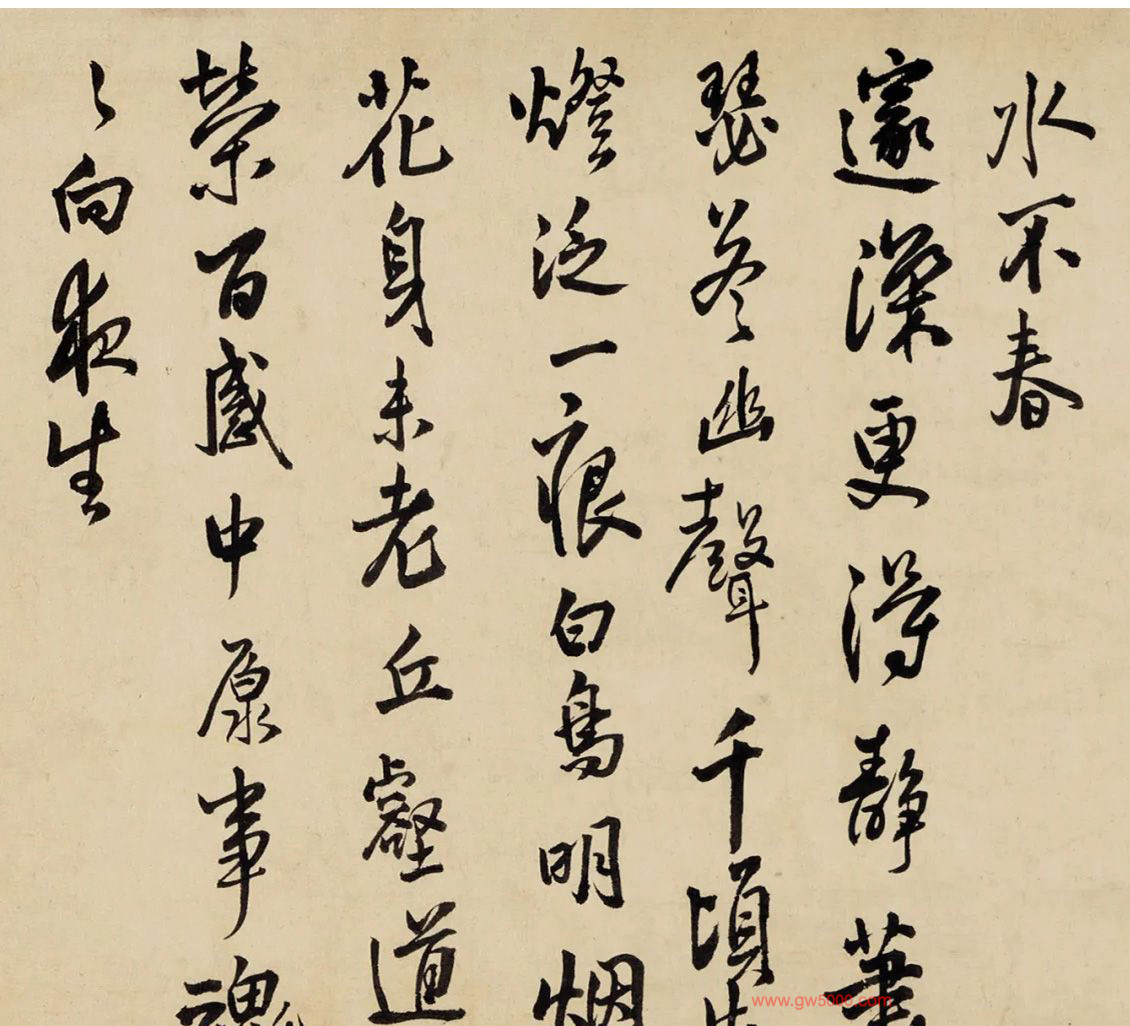 水不春
邃深更得静華
瑟答幽聲千頃生
燈泛一痕白鳥明烟
花身未老丘壑道
榮百感中原事魂
〻向夜生
www.gw5000.com